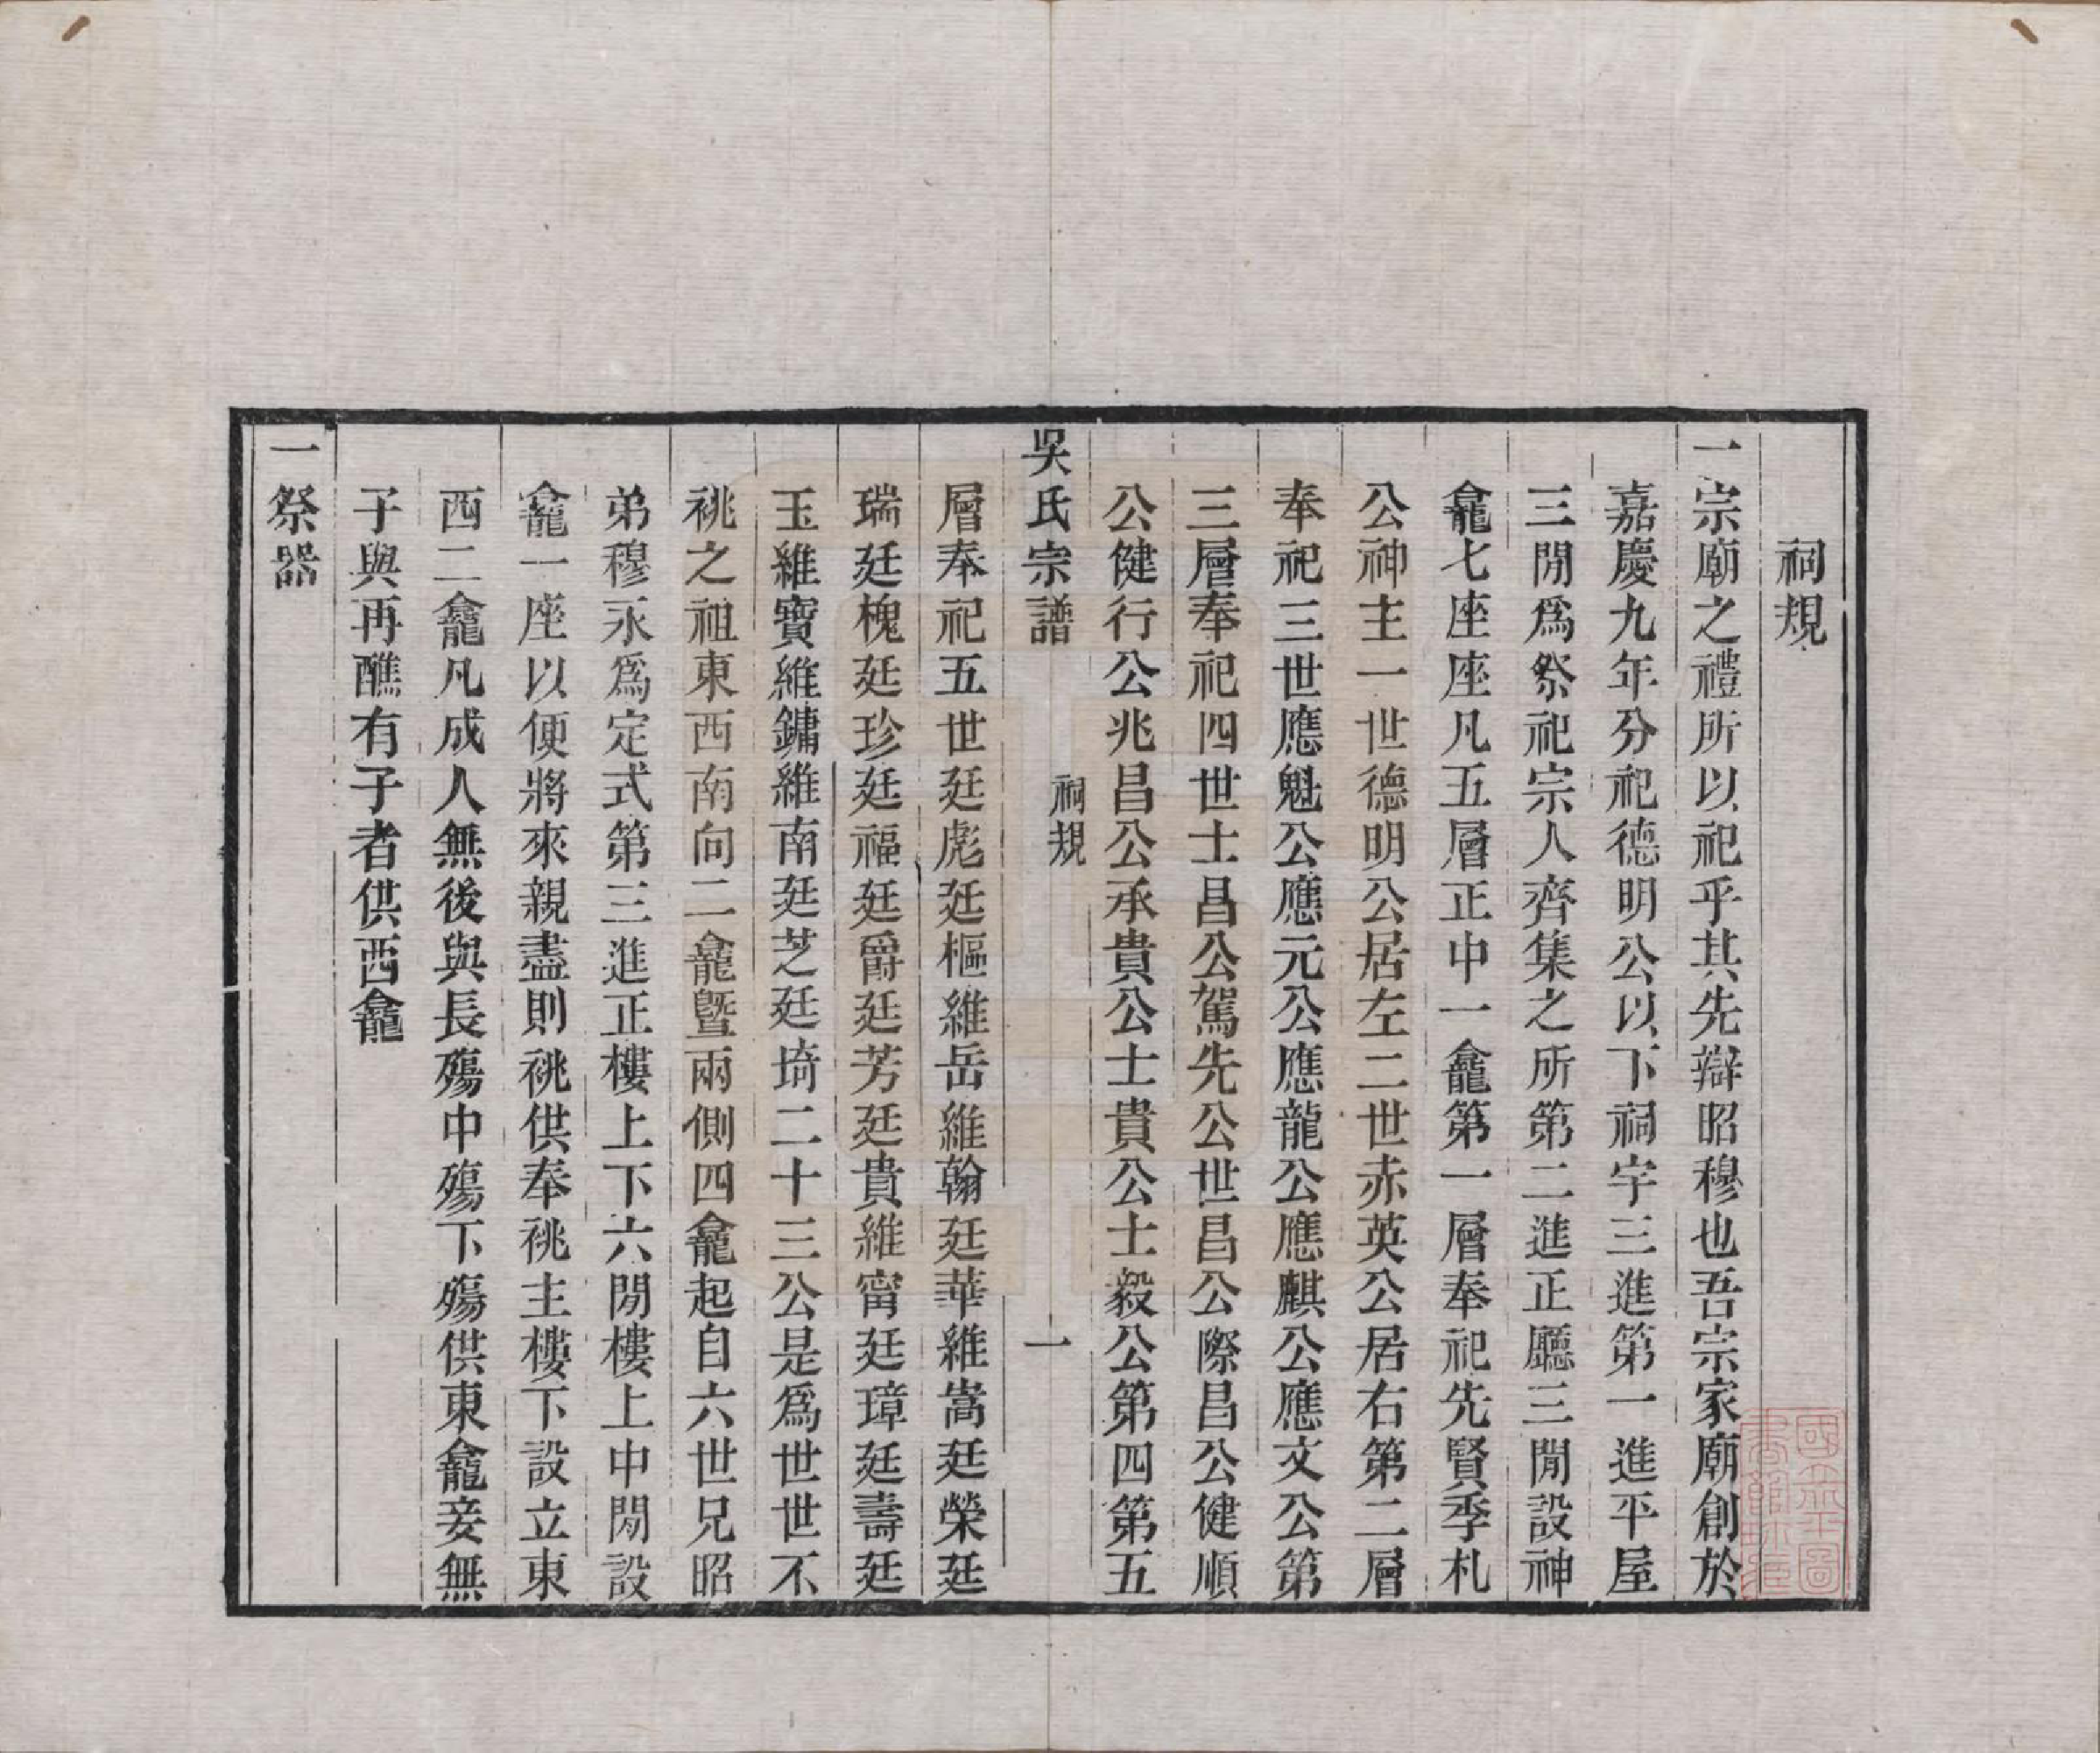 祠規
一宗廟之禮所以祀乎其先辯昭穆也吾宗家廟創於
嘉慶九年分祀德明公以下祠宇三進第一進平屋
三閒爲祭祀宗人齊集之所第二進正廳三閒設神
龕七座座凡五層正中一龕第一層奉祀先賢季札
公神主一世德明公居左二世赤英公居右第二層
奉祀三世應魁公應元公應龍公應麒公應文公第
三層奉祀四世士昌公駕先公世昌公際昌公健順
公健行公兆昌公承貴公士貴公士毅公第四第五
吳氏宗譜 祠規 一
層奉祀五世廷彪廷樞維岳維翰廷華維嵩廷榮廷
瑞廷槐廷珍廷福廷爵廷芳廷貴維甯廷璋廷壽廷
玉維寶維鏞維南廷芝廷埼二十三公是爲世世不
祧之祖東西南向二龕曁兩側四龕起自六世兄昭
弟穆永爲定式第三進正樓上下六閒樓上中閒設
龕一座以便將來親盡則祧供奉祧主樓下設立東
西二龕凡成人無後與長殤中殤下殤供東龕妾無
子與再醮有子者供西龕
一祭器